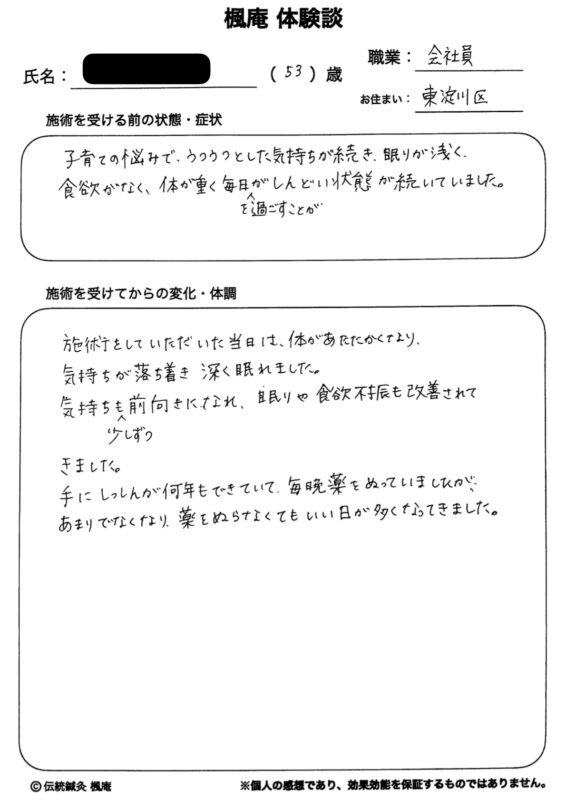 楓庵 体験談
職業： 会社員
氏名： （ 53 ）歳
お住まい： 東淀川区
施術を受ける前の状態・症状
子育ての悩みで、うつうつとした気持ちが続き、眠りが浅く、
食欲がなく、体が重く毎日がしんどい状態が続いていました。
を過ごすことが
施術を受けてからの変化・体調
施術をしていただいた当日は、体があたたかくなり、
気持ちが落ち着き 深く眠れました。
気持ちも前向きになれ、眠りや食欲不振も改善されて
少しずつ
きました。
手にしっしんが何年もできていて、毎晩薬をぬっていましたが、
あまりでなくなり、薬をぬらなくてもいい日が多くなってきました。
©伝統鍼灸 楓庵
※個人の感想であり、効果効能を保証するものではありません。